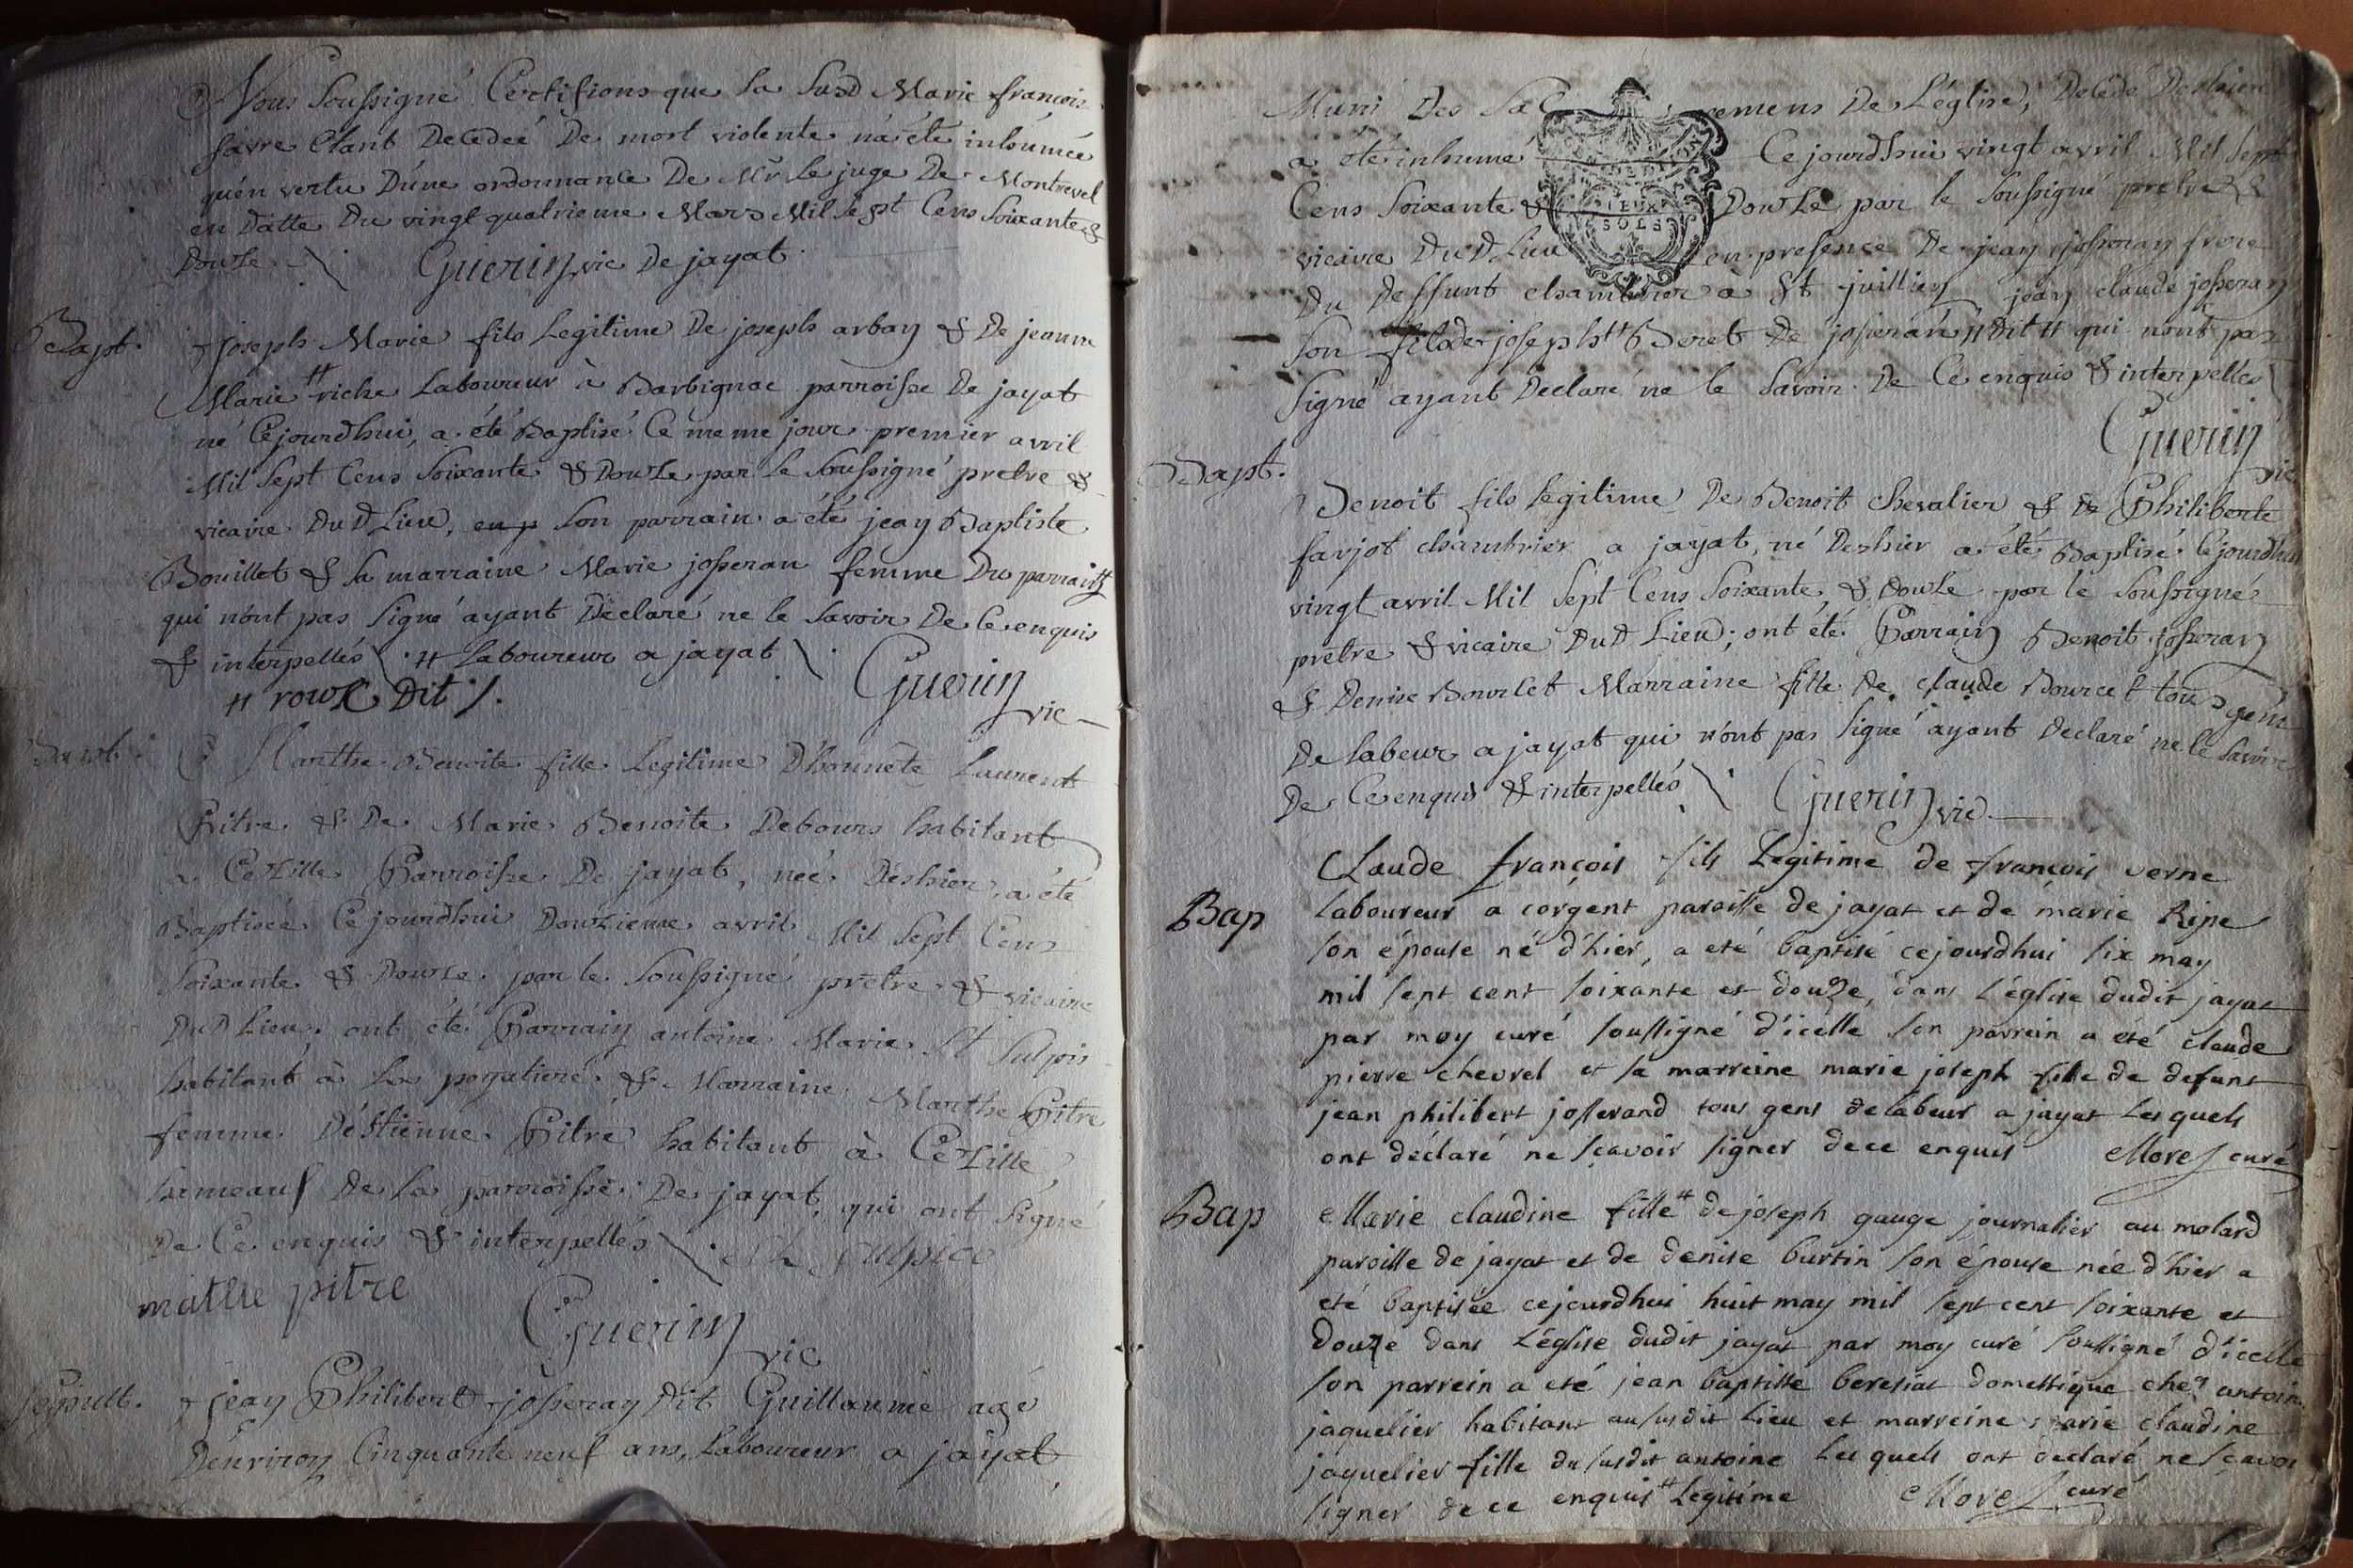 Nous Soussigné Certifions que la Susd Marie françois
favre étant Decedeé De mort violente n'a été inhumée
qu'en vertu D'une ordonnance De Mr Le juge De Montrevel
en Datte Du vingt quatrieme Mars Mil Sept Cens Soixante &
Douze Guerin vic De jayat
Bapt. joseph Marie fils Legitime De joseph arban & De jeanne
Marie # riche Laboureur à Barbignac parroisse De jayat
né Cejourdhui, a été Baptisé Ce meme jour premier avril
Mil Sept Cens Soixante & Douze par le Soussigné pretre &
vicaire Du D Lieu, en p Son parrain a été jean Baptiste
Bouillet & Sa marraine Marie josseran femme Du parrain #
qui n'ont pas Signé ayant Déclaré ne le Savoir De Ce enquis
& interpellés # Laboureur a jayat Guerin
# roux Dit /. vic
Bapt. Marthe Benoite fille Legitime D'honnete Laurent
Pitre & De Marie Benoite Debours habitant
a Cézille Parroisse De jayat, neé Deshier, a été
Baptisée Cejourdhui Douzieme avril Mil Sept Cens
Soixante & Douze par le Soussigné prètre & vicaire
Du D Lieu; ont été Parrain antoine Marie St Sulpis
habitant à La poyatiere & Marraine Marthe Pitre
femme D'éstienne Pitre habitant à Cézille
hameauf De la parroisse De jayat, qui ont Signé
De Ce enquis & interpellés St Sulpice
mathe pitre Guerin
vic
Sepult. jean Philibert josseran Dit Guillaume agé
D'environ Cinquante neuf ans, Laboureur a jayat
Muni Des Sacremens De L'église, Decédé Deshier
a été inhumé Cejourdhui vingt avril Mil Sept
Cens Soixante & Douze par le Soussigné pretre &
DEUX
SOLS
vicaire Du D Lieu en presence De jean josseran frere
Du Deffunt chambrier a St jullien jean claude josseran
Son fils de joseph # Beret De josseran # Dit # qui n'ont pas
Signé ayant Declaré ne le Savoir De Ce enquis & interpellés
Guerin
vic
Bapt. Benoit fils legitime De Benoit chevalier & De Philiberte
farjot chambrier a jayat, né Deshier a été Baptisé Cejourdhui
vingt avril Mil Sept Cens Soixante & Douze par le Soussigné
prètre & vicaire Du D Lieu; ont été Parrain Benoit josseran
& Denise Bourcet Marraine fille De claude Bourcet tous gens
De labeur a jayat qui n'ont pas Signé ayant Declaré ne le Savoir
De Ce enquis & interpellés Guerin vic
Bap Claude françois fils Legitime de françois verne
laboureur a corgent paroisse de jayat et de marie Ripe
son épouse né d'hier, a eté baptisé cejourdhui six may
mil sept cent soixante et douze, dans l'église dudit jayat
par moy curé soussigné d'icelle son parrein a été claude
pierre chevrel et sa marreine marie joseph fille de defunt
jean philibert josserand tous gens de labeur a jayat lesquels
ont déclaré ne sçavoir signer de ce enquis Morel curé
Bap Marie claudine fille # de joseph gauge journalier au molard
paroisse de jayat et de denise burtin son épouse née d'hier a
eté baptisée cejourdhui huit may mil sept cent soixante et
douze dans l'église dudit jayat par moy curé soussigné d'icelle
son parrein a eté jean baptiste beresiat domestique chez antoine
jaquelier habitant au susdit lieu et marreine marie claudine
jaquelier fille du susdit antoine lesquels ont déclaré ne sçavoir
signer de ce enquis # Legitime Morel curé